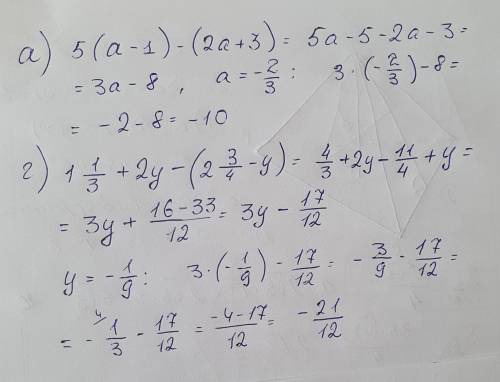 а) 5(a-1)-(2a+3)= 5a-5-2a-3=
= 3a-8, a=-2/3: 3·(-2/3)-8=
= -2-8=-10
г) 1 1/3 +2y-(2 3/4 -y)= 4/3+2y-11/4+y=
= 3y+ (16-33)/12= 3y- 17/12
y=-1/9: 3·(-1/9)- 17/12= -3/9- 17/12=
= - 4/ 1/3 - 17/12= (-4-17)/12= -21/12